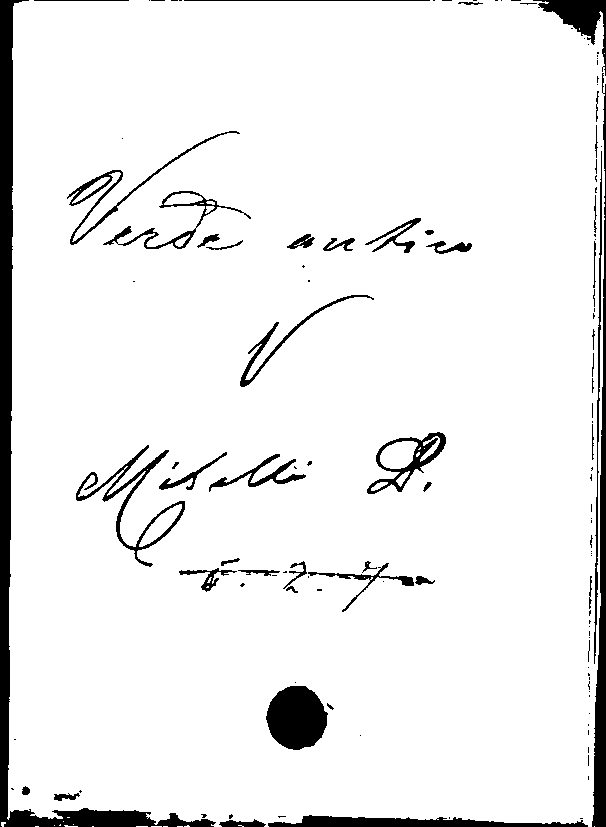 Verde antico
V
Mitelli D.
5. 2. 7